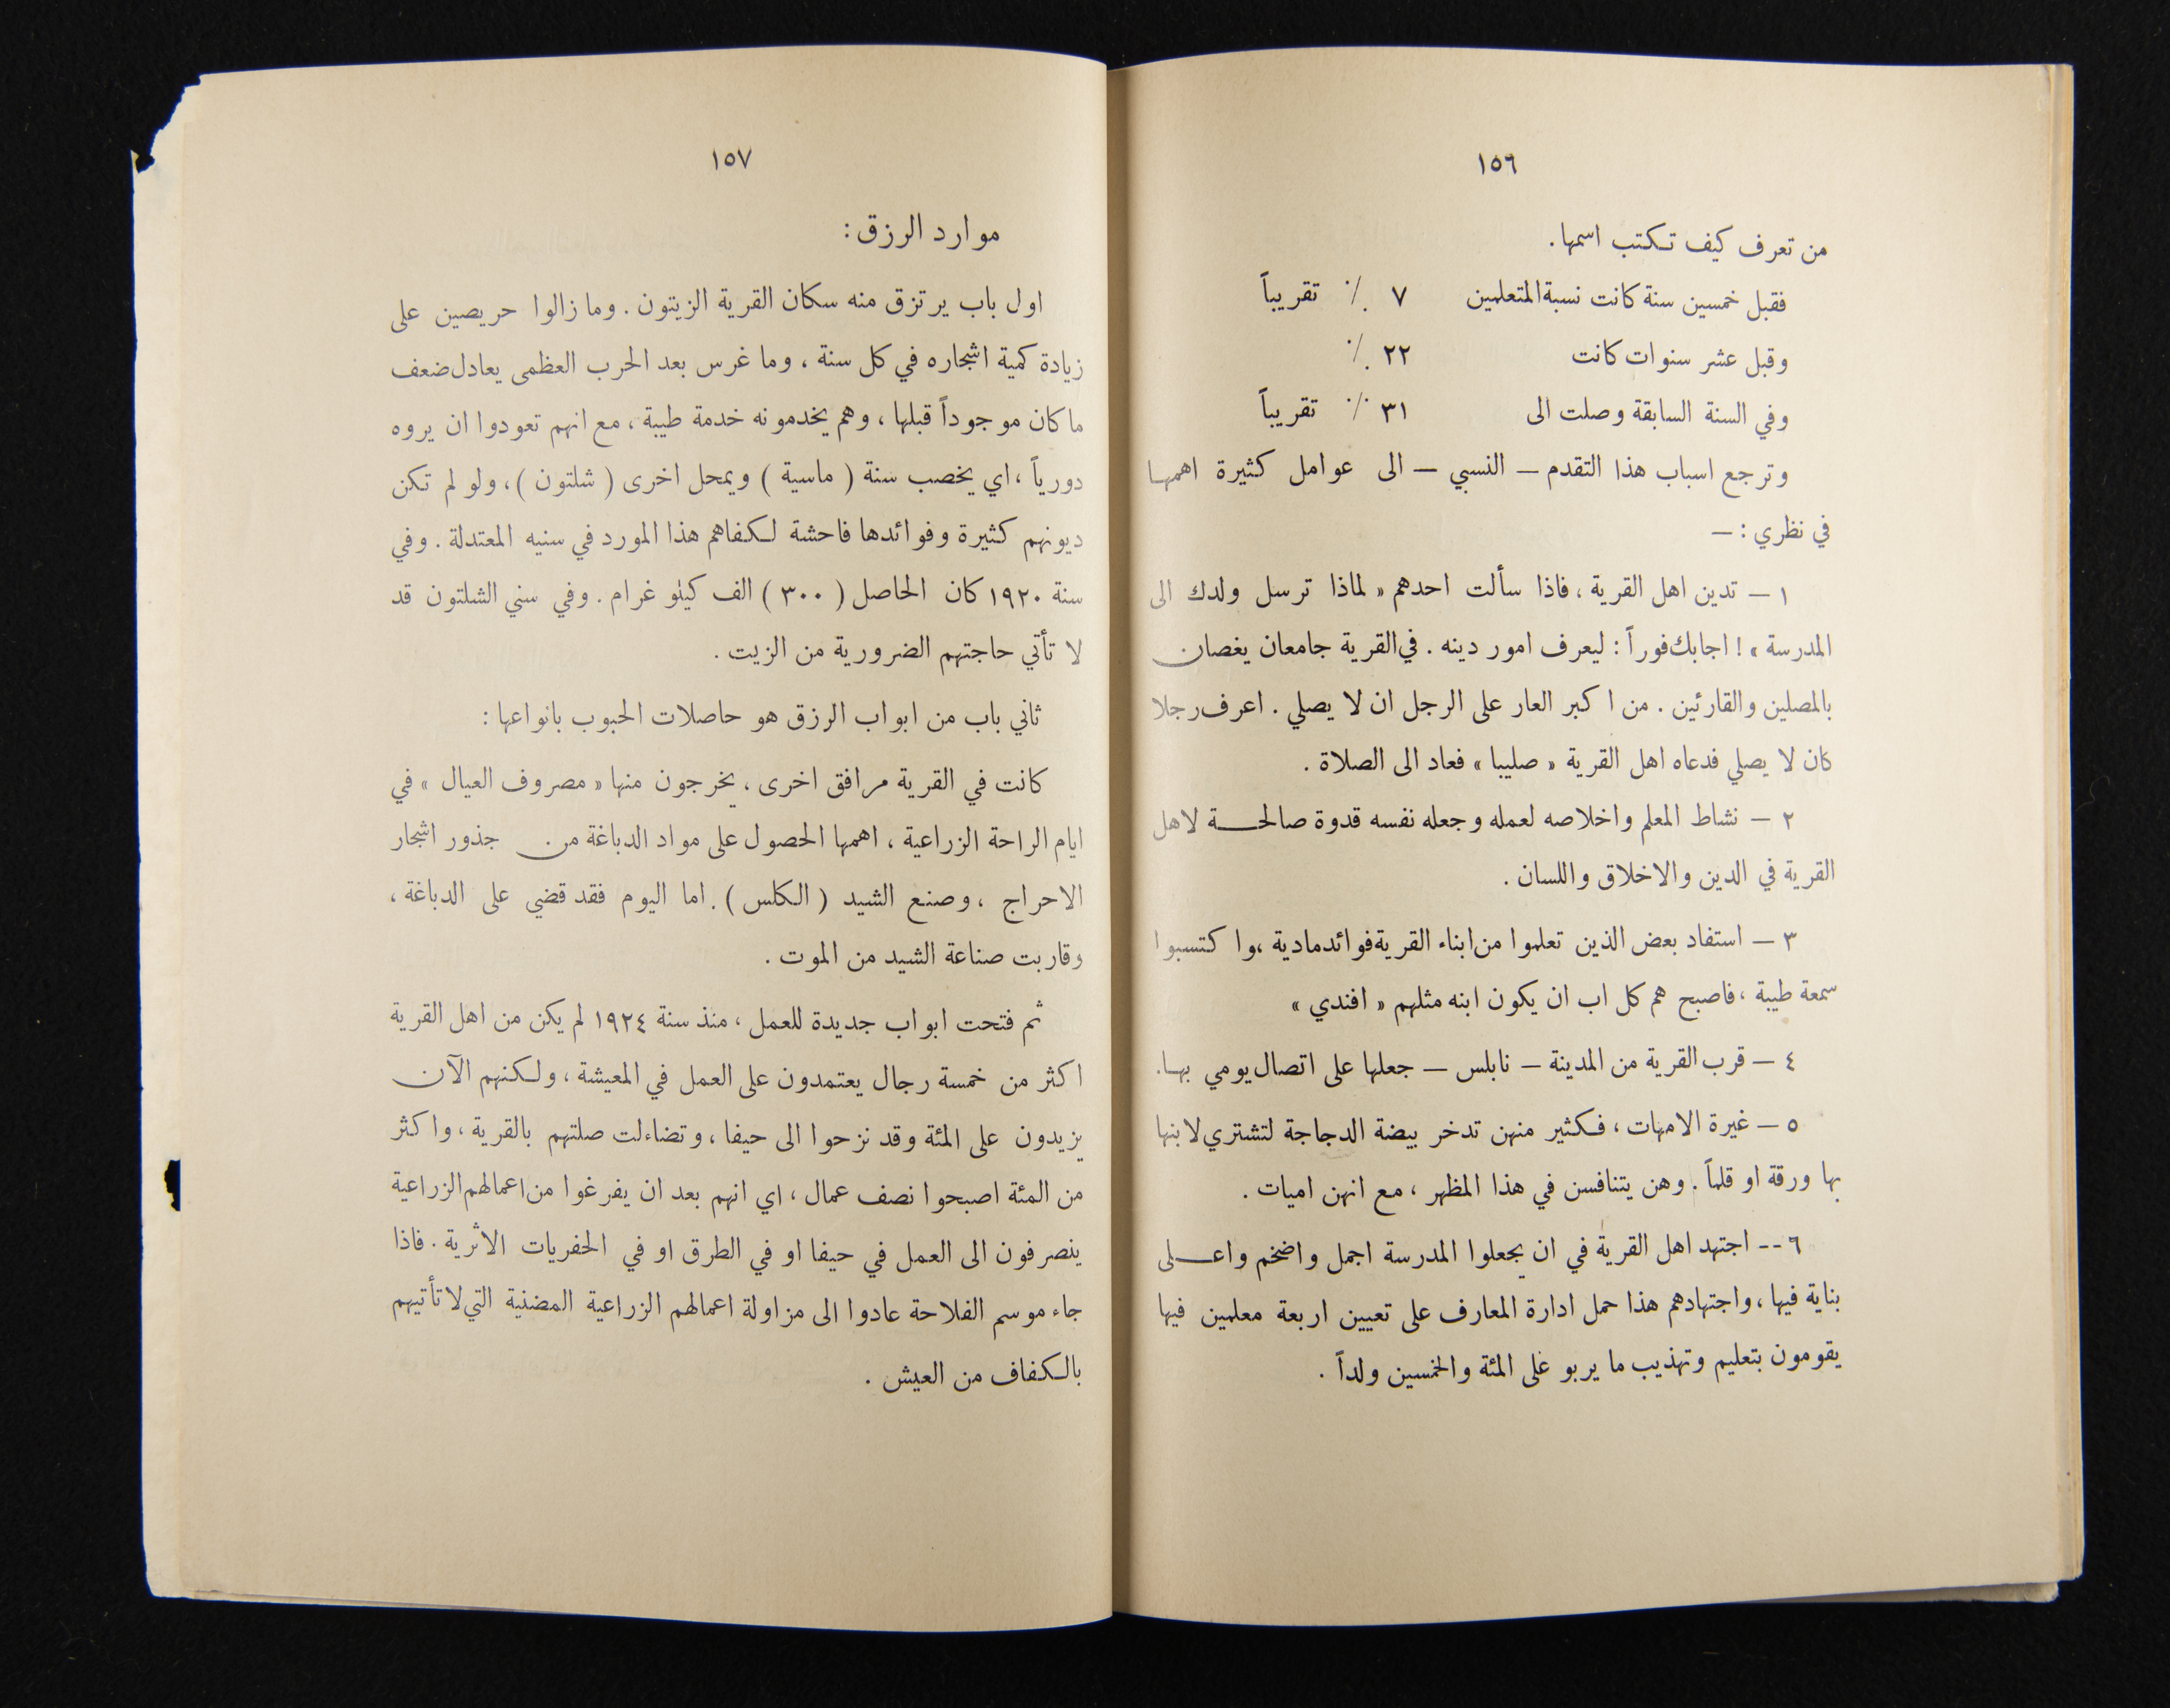 ١٥٦
من تعرف كيف تكتب اسمها .
فقبل خمسين سنة كانت نسبة المتعلمين ٧ ٪ تقريباً
وقبل عشر سنوات كانت ٢٢ ٪
وفي السنة السابقة وصلت الى ٣١ ٪ تقريباً
وترجع اسباب هذا التقدم — النسبي — الى عوامل كثيرة اهمها
في نظري : —
١ — تدين اهل القرية ، فاذا سألت احدهم « لماذا ترسل ولدك الى
المدرسة » ! اجابك فوراً : ليعرف امور دينه . في القرية جامعان يغصان
بالمصلين والقارئين . من اكبر العار على الرجل ان لا يصلي . اعرف رجلا
كان لا يصلي فدعاه اهل القرية « صليبا » فعاد الى الصلاة .
٢ — نشاط المعلم واخلاصه لعمله وجعله نفسه قدوة صالحة لاهل
القرية في الدين والاخلاق واللسان .
٣ — استفاد بعض الذين تعلموا من ابناء القرية فوائد مادية ، واكتسبوا
سمعة طيبة ، فاصبح هم كل اب ان يكون ابنه مثلهم « افندي »
٤ — قرب القرية من المدينة — نابلس — جعلها على اتصال يومي بها .
٥ — غيرة الامهات ، فكثير منهن تدخر بيضة الدجاجة لتشتري لابنها
بها ورقة او قلماً . وهن يتنافسن في هذا المظهر ، مع انهن اميات .
٦ -- اجتهد اهل القرية في ان يجعلوا المدرسة اجمل واضخم واعلى
بناية فيها ، واجتهادهم هذا حمل ادارة المعارف على تعيين اربعة معلمين فيها
يقومون بتعليم وتهذيب ما يربو على المئة والخمسين ولداً .
١٥٧
موارد الرزق :
اول باب يرتزق منه سكان القرية الزيتون . وما زالوا حريصين على
زيادة كمية اشجاره في كل سنة ، وما غرس بعد الحرب العظمى يعادل ضعف
ما كان موجوداً قبلها ، وهم يخدمونه خدمة طيبة ، مع انهم تعودوا ان يروه
دورياً ، اي يخصب سنة ( ماسية ) ويمحل اخرى ( شلتون ) ، ولو لم تكن
ديونهم كثيرة وفوائدها فاحشة لكفاهم هذا المورد في سنيه المعتدلة . وفي
سنة ١٩٢٠ كان الحاصل ( ٣٠٠ ) الف كيلو غرام . وفي سني الشلتون قد
لا تأتي حاجتهم الضرورية من الزيت .
ثاني باب من ابواب الرزق هو حاصلات الحبوب بانواعها :
كانت في القرية مرافق اخرى ، يخرجون منها « مصروف العيال » في
ايام الراحة الزراعية ، اهمها الحصول على مواد الدباغة من جذور اشجار
الاحراج ، وصنع الشيد ( الكلس ) . اما اليوم فقد قضي على الدباغة ،
وقاربت صناعة الشيد من الموت .
ثم فتحت ابواب جديدة للعمل ، منذ سنة ١٩٢٤ لم يكن من اهل القرية
اكثر من خمسة رجال يعتمدون على العمل في المعيشة ، ولكنهم الآن
يزيدون على المئة وقد نزحوا الى حيفا ، وتضاءلت صلتهم بالقرية ، واكثر
من المئة اصبحوا نصف عمال ، اي انهم بعد ان يفرغوا من اعمالهم الزراعية
ينصرفون الى العمل في حيفا او في الطرق او في الحفريات الاثرية . فاذا
جاء موسم الفلاحة عادوا الى مزاولة اعمالهم الزراعية المضنية التي لا تأتيهم
بالكفاف من العيش .